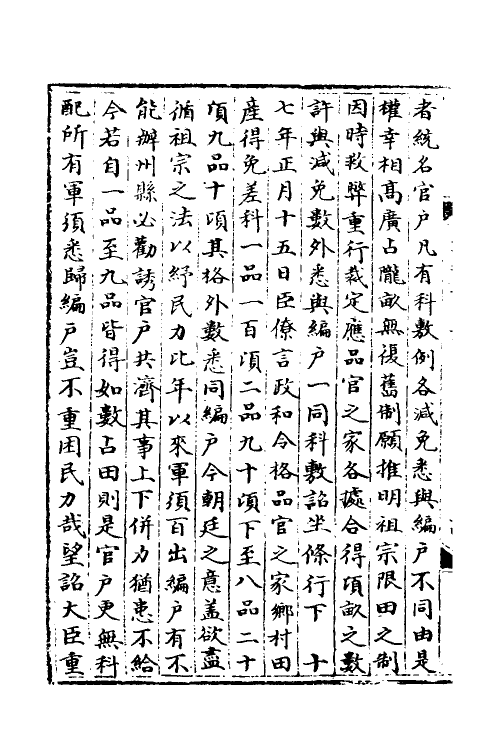 者統名官户凡有科敷例各減免悉與編户不同由是
權幸相髙廣占隴畝無復舊制願推明祖宗限田之制
因時救弊重行裁定應品官之家各據合得頃畝之數
許與減免數外悉與編户一同科敷詔坐條行下　十
七年正月十五日臣僚言政和令格品官之家鄉村田
產得免差科一品一百頃二品九十頃下至八品二十
頃九品十頃其格外數悉同編户今朝廷之意蓋欲盡
循祖宗之法以紓民力比年以來軍須百出編户有不
能辦州縣必勸誘官户共濟其事上下併力猶患不給
今若自一品至九品皆得如數占田則是官户更無科
配所有軍須悉歸編户豈不重困民力哉望詔大臣重